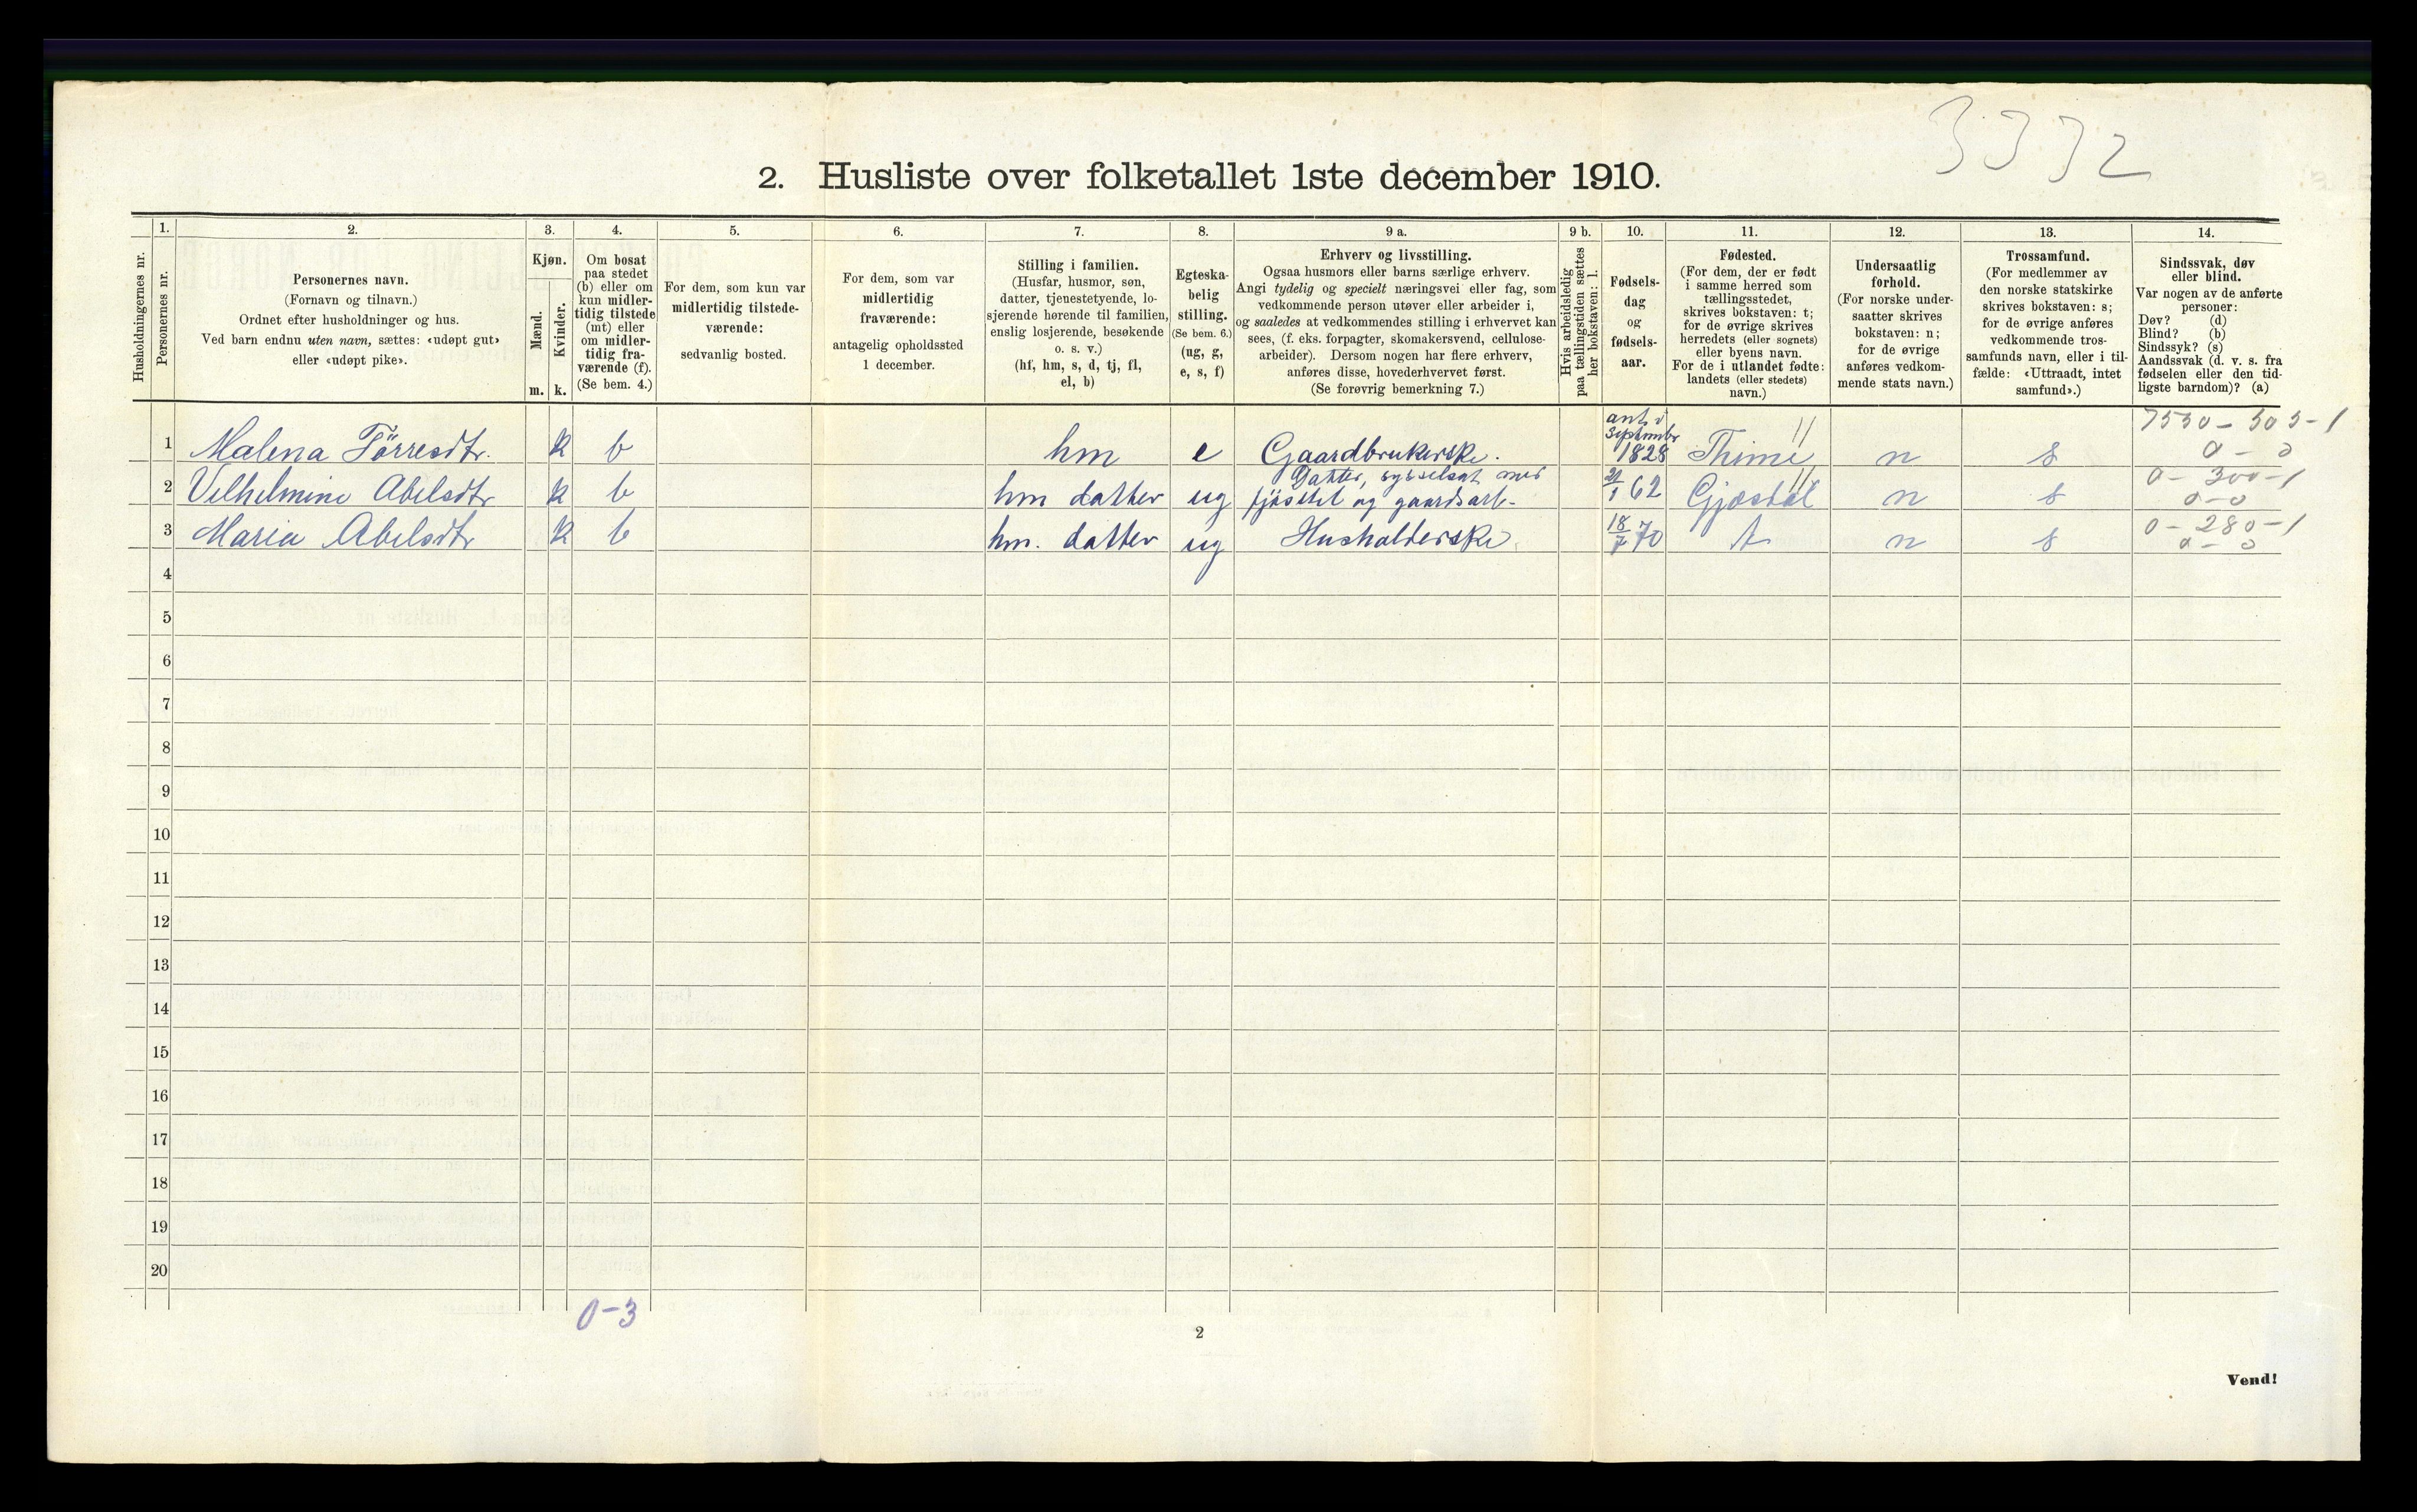 3332
2. Husliste over folketallet 1ste december 1910.
Husholdningernes nr.
1.
Personernes nr.
2.
Personernes navn.
(Fornavn og tilnavn.)
Ordnet efter husholdninger og hus.
Ved barn endnu uten navn, sættes: «udøpt gut»
eller «udøpt pike».
3.
Kjøn.
Mænd.
Kvinder.
m. k.
4.
Om bosat
paa stedet
(b) eller om
kun midler-
tidig tilstede
(mt) eller
om midler-
tidig fra-
værende (f).
(Se bem. 4.)
5.
For dem, som kun var
midlertidig tilstede-
værende:
sedvanlig bosted.
6.
For dem, som var
midlertidig
fraværende:
antagelig opholdssted
1 december.
7.
Stilling i familien.
(Husfar, husmor, søn,
datter, tjenestetyende, lo-
sjerende hørende til familien,
enslig losjerende, besøkende
o. s. v.)
(hf, hm, s, d, tj, fl,
el, b)
8.
Egteska-
belig
stilling.
(Se bem. 6.)
(ug, g,
e, s, f)
9 a.
Erhverv og livsstilling.
Ogsaa husmors eller barns særlige erhverv.
Angi tydelig og specielt næringsvei eller fag, som
vedkommende person utøver eller arbeider i,
og saaledes at vedkommendes stilling i erhvervet kan
sees, (f. eks. forpagter, skomakersvend, cellulose-
arbeider). Dersom nogen har flere erhverv,
anføres disse, hovederhvervet først.
(Se forøvrig bemerkning 7.)
9 b.
Hvis arbeidsledig
paa tællingstiden sættes
her bokstaven: l.
10.
Fødsels-
dag
og
fødsels-
aar.
11.
Fødested.
(For dem, der er født
i samme herred som
tællingsstedet,
skrives bokstaven: t;
for de øvrige skrives
herredets (eller sognets)
eller byens navn.
For de i utlandet fødte:
landets (eller stedets)
navn.)
12.
Undersaatlig
forhold.
(For norske under-
saatter skrives
bokstaven: n;
for de øvrige
anføres vedkom-
mende stats navn.)
13.
Trossamfund.
(For medlemmer av
den norske statskirke
skrives bokstaven: s;
for de øvrige anføres
vedkommende tros-
samfunds navn, eller i til-
fælde: «Uttraadt, intet
samfund».)
14.
Sindssvak, døv
eller blind.
Var nogen av de anførte
personer:
Døv? (d)
Blind? (b)
Sindssyk? (s)
Aandssvak (d. v. s. fra
fødselen eller den tid-
ligste barndom)? (a)
1 Malena Törresdtr. k b hm e Gaardbrukerske. Septembr 1828 Thime n s 7530-505-1
0-0
2 Vilhelmine Abelsdtr k b hm datter ug Datter, sysselsat med
fjøsstel og gaardsarb- 62 Gjæstal n s 0-300-1
0-0
3 Maria Abelsdtr k b hm. datter ug Husholderske 18/7 70 t n s 0-280-1
0-0
4
5
6
7
8
9
10
11
12
13
14
15
16
17
18
19
20
0-3
2
Vend!